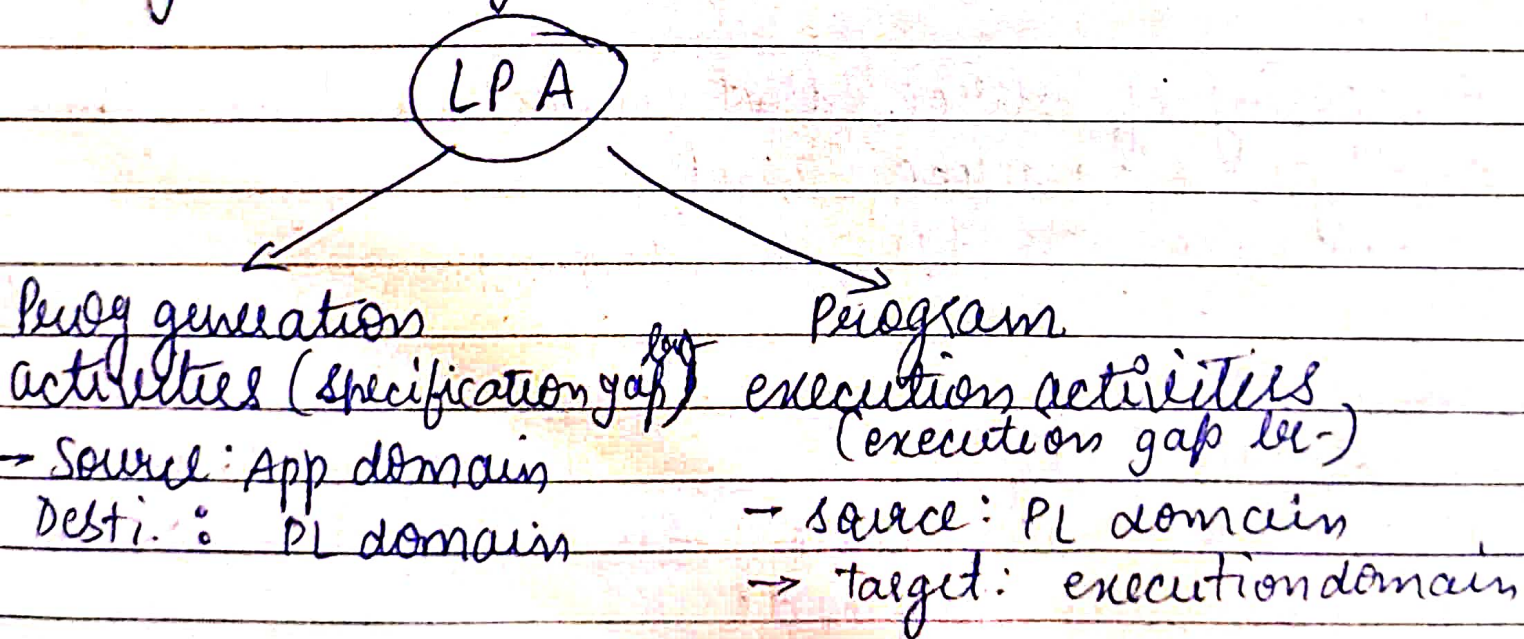 LPA
Prog generation
activities (specification gap)
Source: App domain
Desti. : PL domain
Program
execution activities
(execution gap br-)
→ source: PL domain
→ target: execution domain